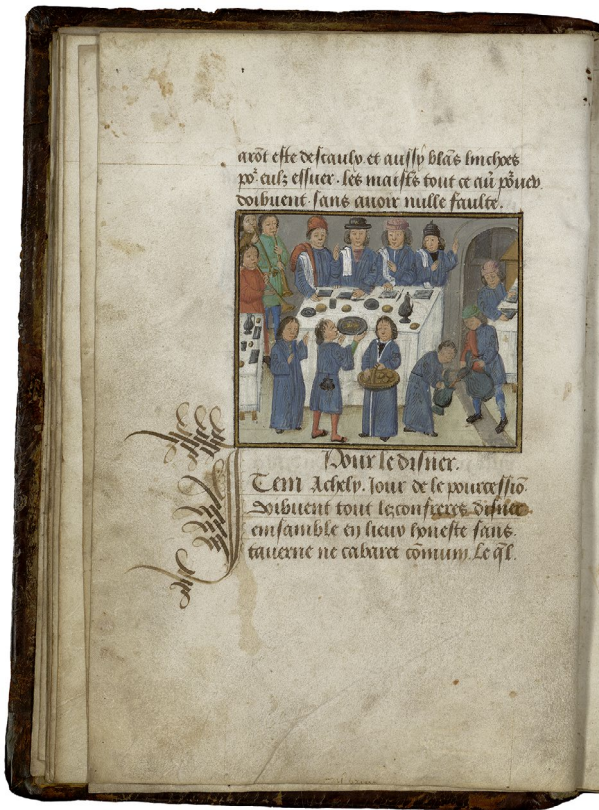 arōt este descauly. et aussy blās linchoes
po᷑ eulz essuer. les maist͛s tout ce au
doibuent. sans auoir nulle faulte.
Pour le disner.
Item Achely. Jour de le pourcessiō
doibuent tout lez confreres disner
ensamble en lieuv honeste sans
tauerne ne cabaret cōmum. Le ql̄.